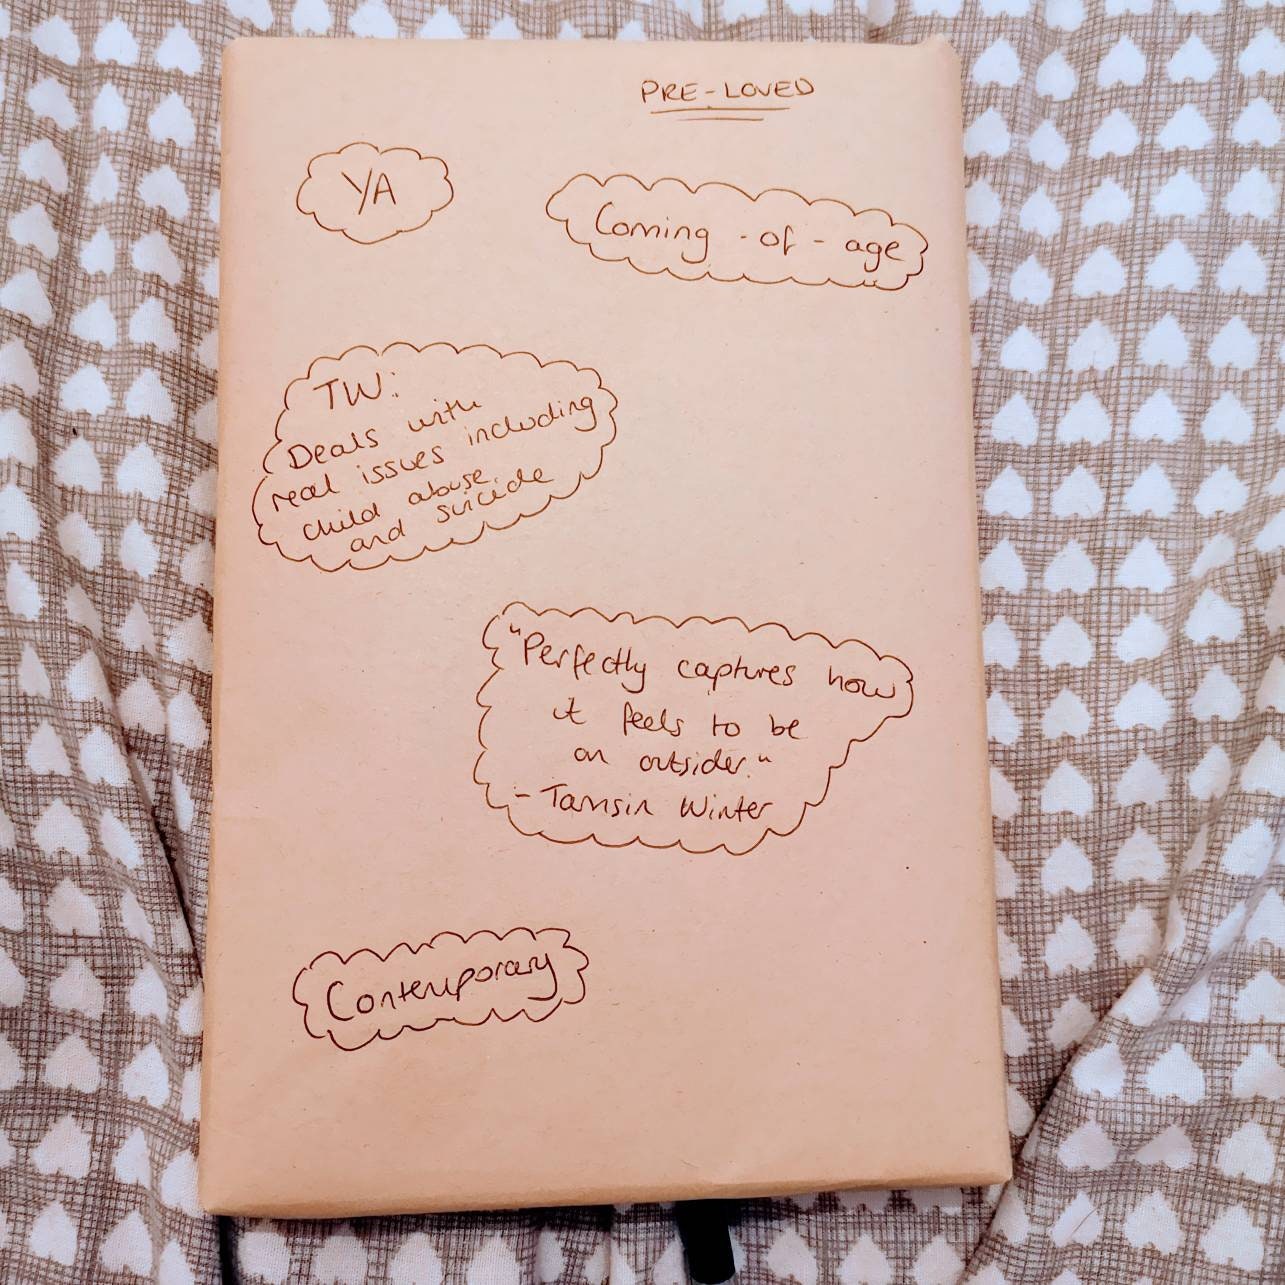 PRE-LOVED
YA
Coming-of-age
TW:
Deals with
real issues including
child abuse
and suicide
"Perfectly captures how
it feels to be
an outsider."
- Tamsin Winter
Contemporary